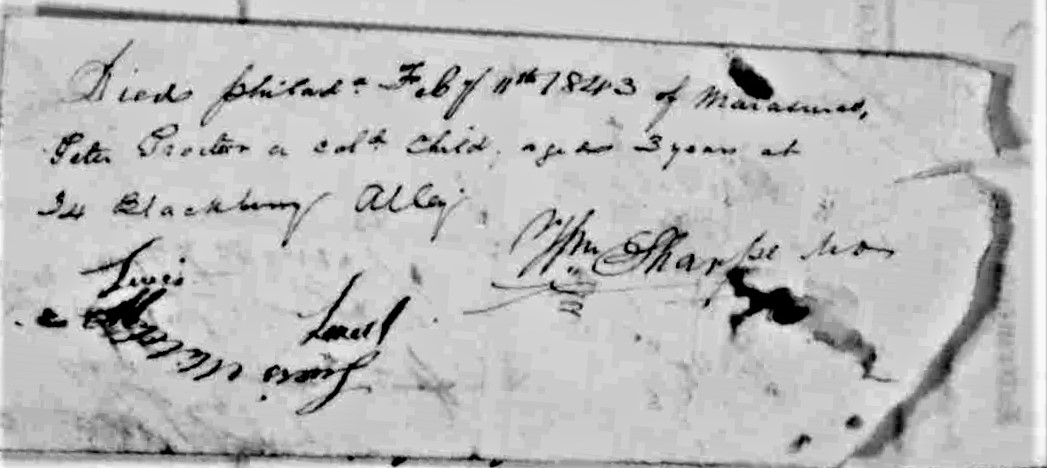 Died Philada Feby 11th 1843 of Marasmus,
Peter Procter a cold Child, aged 3 years at
34 Blackberry Alley
Wm Sharpe MD
Lewis